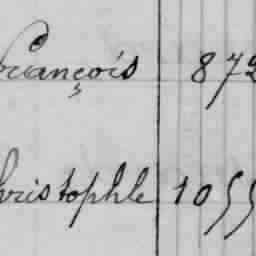 François 872
Christophle 1055